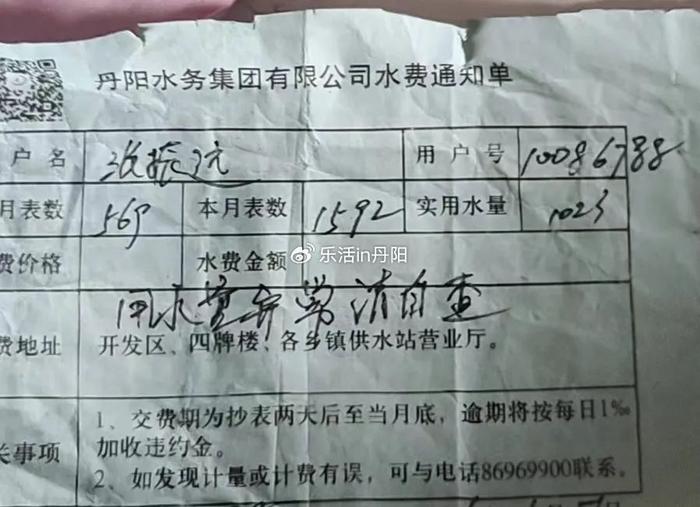 丹阳水务集团有限公司水费通知单
户名 振 用户号 10086788
月表数 569 本月表数 1592 实用水量 1023
费价格 水费金额
乐活in丹阳
用水量异常请自查
费地址 开发区、四牌楼、各乡镇供水站营业厅。
1、交费期为抄表两天后至当月底，逾期将按每日1‰
关事项 加收违约金。
2、如发现计量或计费有误，可与电话86969900联系。